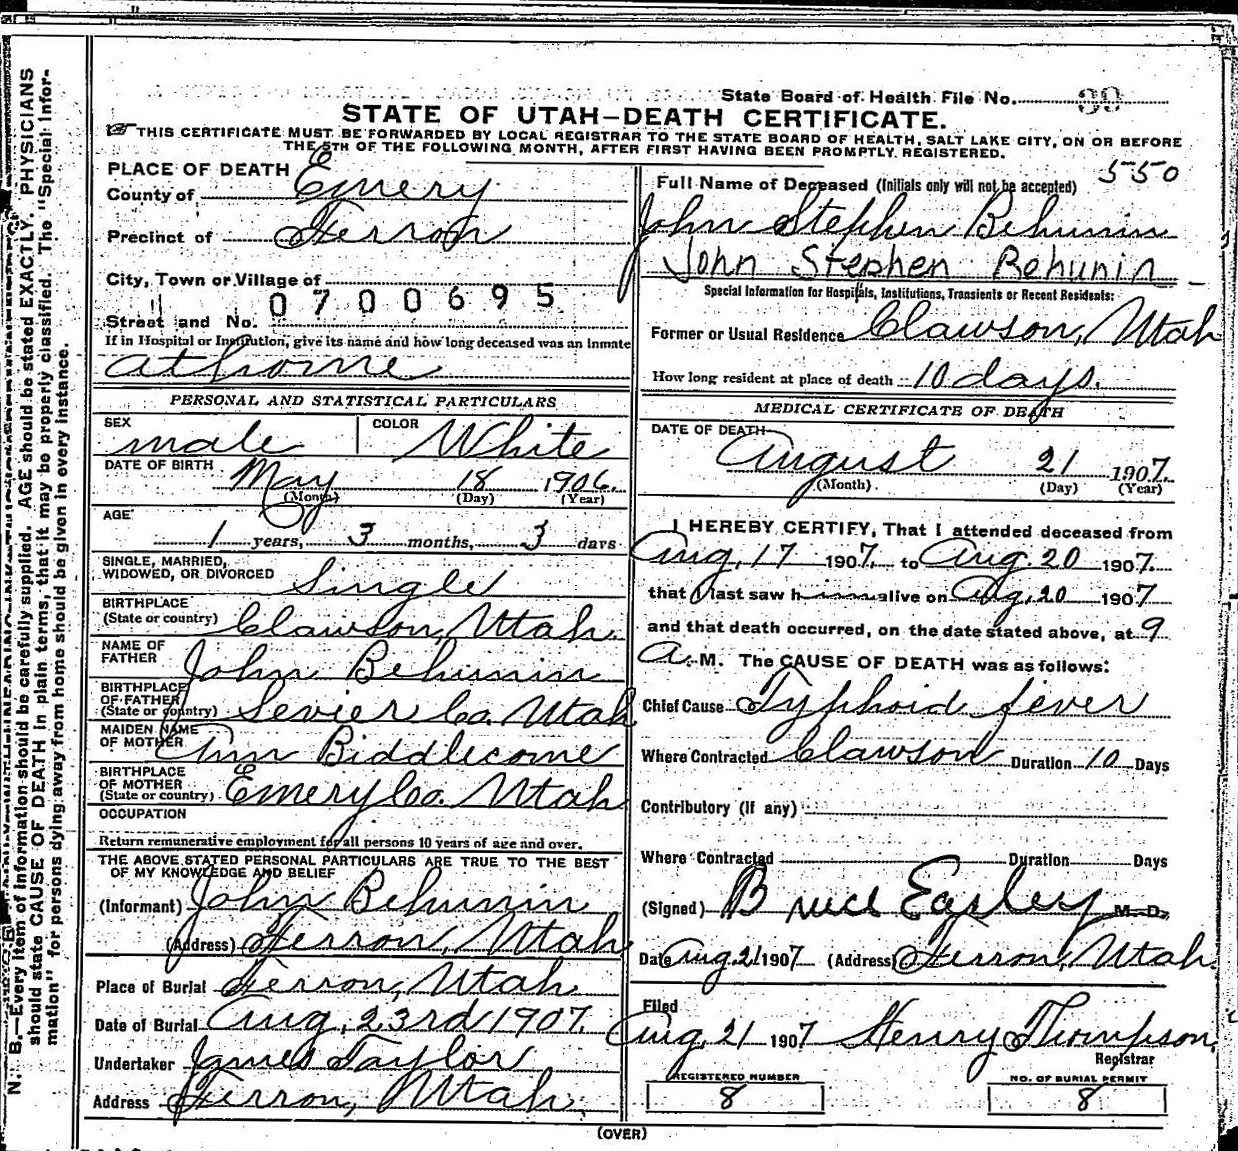 State Board of Health File No. 39
STATE OF UTAH–DEATH CERTIFICATE.
THIS CERTIFICATE MUST BE FORWARDED BY LOCAL REGISTRAR TO THE STATE BOARD OF HEALTH, SALT LAKE CITY, ON OR BEFORE
THE 5TH OF THE FOLLOWING MONTH, AFTER FIRST HAVING BEEN PROMPTLY REGISTERED.
N. B.—Every item of information should be carefully supplied. AGE should be stated EXACTLY. PHYSICIANS
should state CAUSE OF DEATH in plain terms, that it may be properly classified. The "Special Infor-
mation" for persons dying away from home should be given in every instance.
PLACE OF DEATH
County of Emery
Precinct of Ferron
City, Town or Village of
0700695
Street and No.
If in Hospital or Institution, give its name and how long deceased was an inmate
at home
PERSONAL AND STATISTICAL PARTICULARS
SEX male COLOR White
DATE OF BIRTH May 18 1906
(Month) (Day) (Year)
AGE
1 years, 3 months, 3 days
SINGLE, MARRIED,
WIDOWED, OR DIVORCED Single
BIRTHPLACE
(State or country) Clawson, Utah
NAME OF
FATHER John Behunin
BIRTHPLACE
OF FATHER
(State or country) Sevier Co. Utah
MAIDEN NAME
OF MOTHER Ann Biddlecome
BIRTHPLACE
OF MOTHER
(State or country) Emery Co. Utah
OCCUPATION
Return remunerative employment for all persons 10 years of age and over.
THE ABOVE STATED PERSONAL PARTICULARS ARE TRUE TO THE BEST
OF MY KNOWLEDGE AND BELIEF
(Informant) John Behunin
(Address) Ferron, Utah
Place of Burial Ferron, Utah
Date of Burial Aug, 23rd 1907.
Undertaker James Taylor
Address Ferron, Utah.
550
Full Name of Deceased (Initials only will not be accepted)
John Stephen Behunin
John Stephen Behunin
Special Information for Hospitals, Institutions, Transients or Recent Residents:
Former or Usual Residence Clawson, Utah
How long resident at place of death 10 days.
MEDICAL CERTIFICATE OF DEATH
DATE OF DEATH
August 21 1907.
(Month) (Day) (Year)
I HEREBY CERTIFY, That I attended deceased from
Aug, 17 1907. to Aug. 20 1907.
that I last saw him alive on Aug, 20 1907
and that death occurred, on the date stated above, at 9
A. M. The CAUSE OF DEATH was as follows:
Chief Cause Typhoid fever
Where Contracted Clawson Duration 10 Days
Contributory (if any)
Where Contracted Duration Days
(Signed) Bruce Easley M. D.
Date Aug 21 1907 (Address) Ferron, Utah.
Filed
Aug, 21 1907 Henry Thompson,
Registrar
REGISTERED NUMBER
8
NO. OF BURIAL PERMIT
8
(OVER)